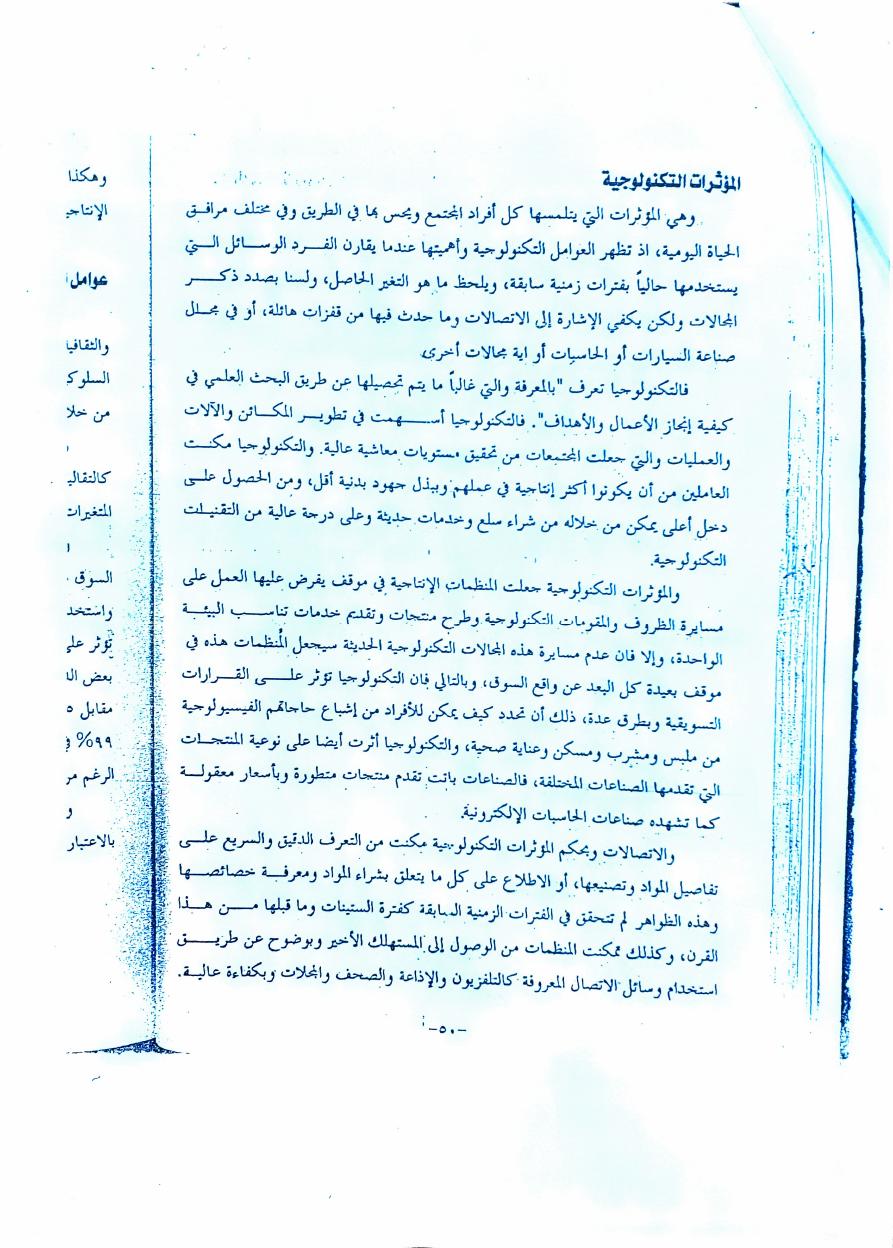 المؤثرات التكنولوجية
وهي المؤثرات التي يتلمسها كل أفراد المجتمع ويحس بها في الطريق وفي مختلف مرافق
الحياة اليومية، اذ تظهر العوامل التكنولوجية وأهميتها عندما يقارن الفرد الوسائل التي
يستخدمها حالياً بفترات زمنية سابقة، ويلحظ ما هو التغير الحاصل، ولسنا بصدد ذكر
المجالات ولكن يكفي الإشارة إلى الاتصالات وما حدث فيها من قفزات هائلة، أو في مجال
صناعة السيارات أو الحاسبات أو اية مجالات أخرى.
فالتكنولوجيا تعرف "بالمعرفة والتي غالباً ما يتم تحصيلها عن طريق البحث العلمي في
كيفية إنجاز الأعمال والأهداف". فالتكنولوجيا أسهمت في تطوير المكائن والآلات
والعمليات والتي جعلت المجتمعات من تحقيق مستويات معاشية عالية. والتكنولوجيا مكنت
العاملين من أن يكونوا أكثر إنتاجية في عملهم وببذل جهود بدنية أقل، ومن الحصول على
دخل أعلى يمكن من خلاله من شراء سلع وخدمات حديثة وعلى درجة عالية من التقنيات
التكنولوجية.
والمؤثرات التكنولوجية جعلت المنظمات الإنتاجية في موقف يفرض عليها العمل على
مسايرة الظروف والمقومات التكنولوجية وطرح منتجات وتقديم خدمات تناسب البيئة
الواحدة، وإلا فان عدم مسايرة هذه المجالات التكنولوجية الحديثة سيجعل المنظمات هذه في
موقف بعيدة كل البعد عن واقع السوق، وبالتالي فان التكنولوجيا تؤثر على القرارات
التسويقية وبطرق عدة، ذلك أن تحدد كيف يمكن للأفراد من إشباع حاجاتهم الفيسيولوجية
من ملبس ومشرب ومسكن وعناية صحية، والتكنولوجيا أثرت أيضا على نوعية المنتجات
التي تقدمها الصناعات المختلفة، فالصناعات باتت تقدم منتجات متطورة وبأسعار معقولة
كما تشهده صناعات الحاسبات الإلكترونية.
والاتصالات وبحكم المؤثرات التكنولوجية مكنت من التعرف الدقيق والسريع على
تفاصيل المواد وتصنيعها، أو الاطلاع على كل ما يتعلق بشراء المواد ومعرفة خصائصها
وهذه الظواهر لم تتحقق في الفترات الزمنية السابقة كفترة الستينات وما قبلها من هذا
القرن، وكذلك تمكنت المنظمات من الوصول إلى المستهلك الأخير وبوضوح عن طريق
استخدام وسائل الاتصال المعروفة كالتلفزيون والإذاعة والصحف والمجلات وبكفاءة عالية.
-٥٠-
وهكذا
عوامل
السلوك
من خلا
المتغيرات
السوق
واستخد
تؤثر على
بعض
مقابل ٥
٩٩%
الرغم
و
بالاعتبار